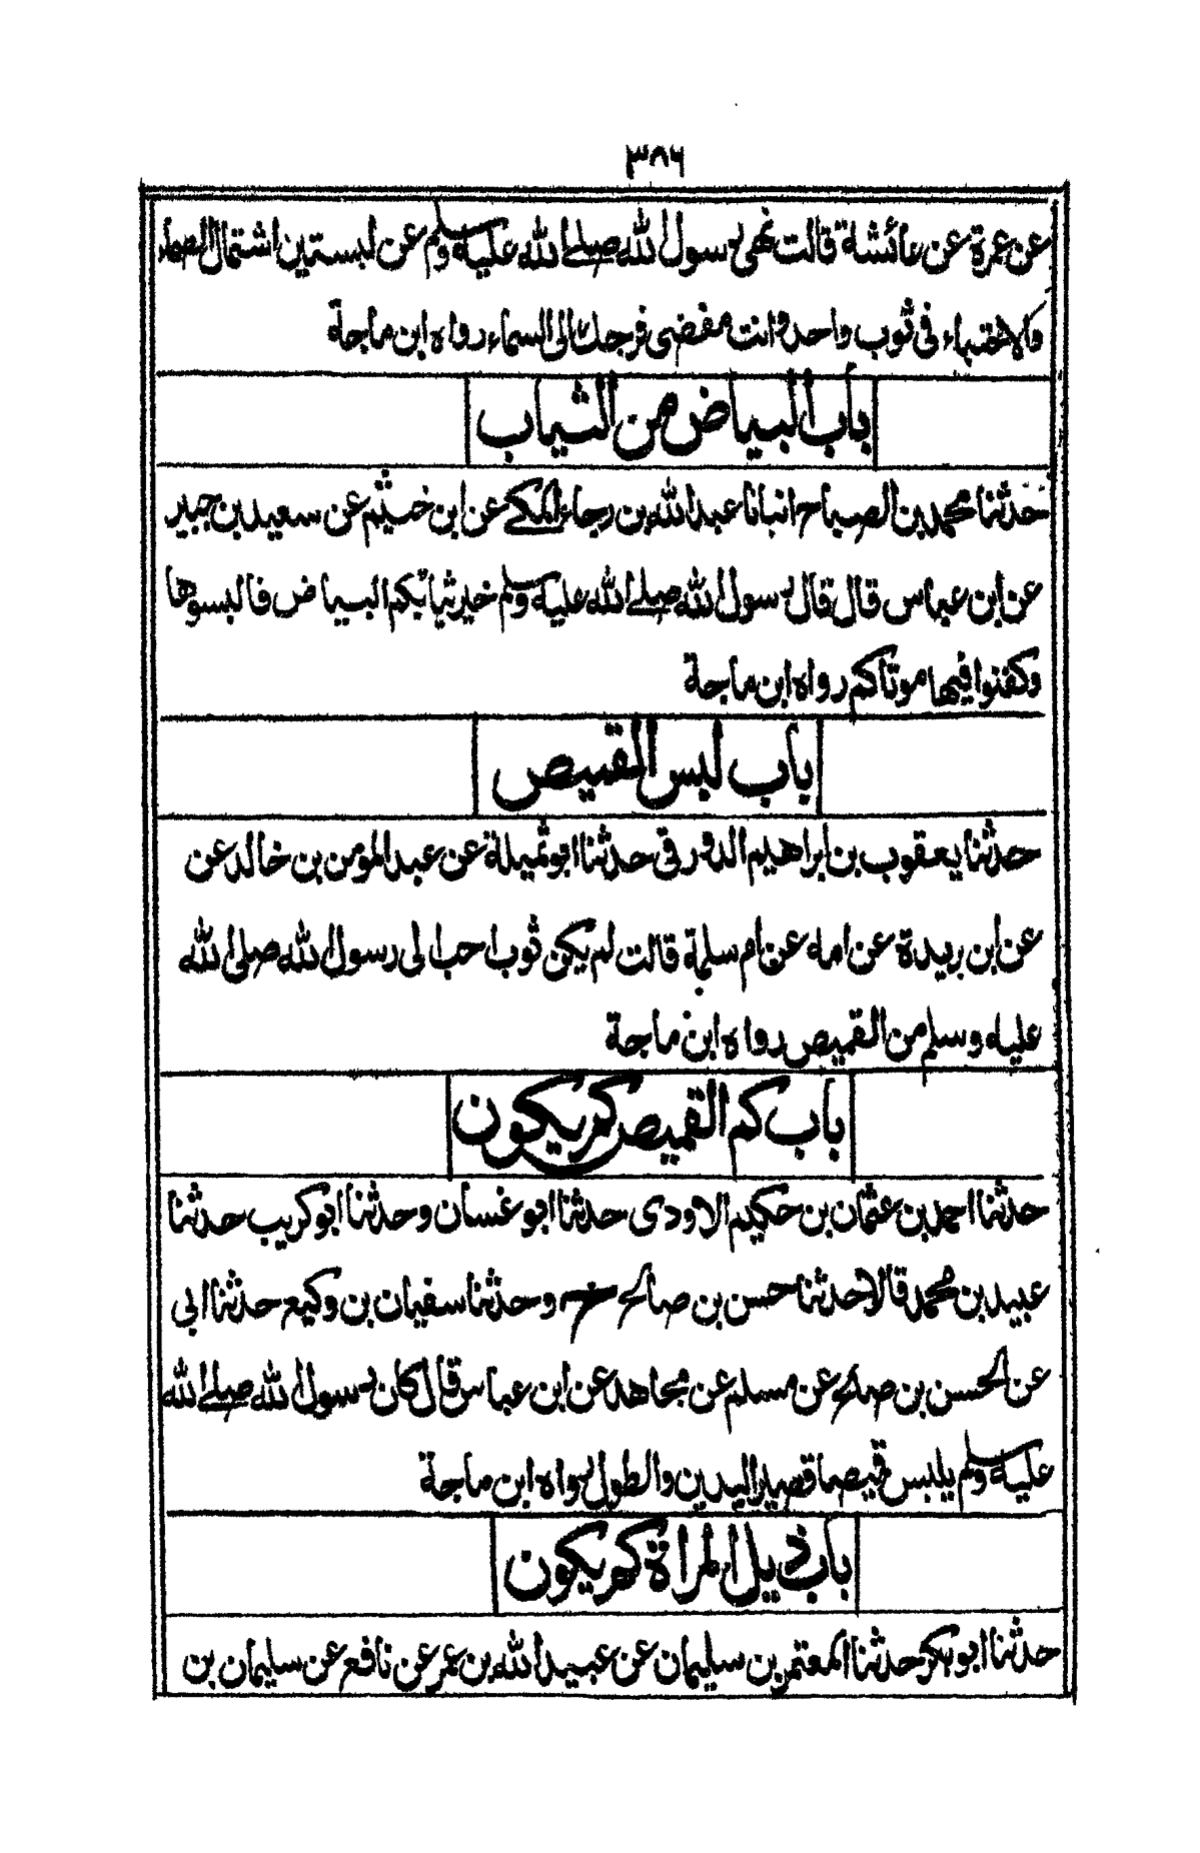 ٣٨٦
عن عمرة عن عائشة قالت نهى رسول الله صلے الله عليه وسلم عن لبستين اشتمال الصماء
والاحتباء فى ثوب واحد وانت مفضى فرجك الى السماء رواه ابن ماجة
باب البياض من الثياب
حدثنا محمد بن الصباح انبانا عبد الله بن رجاء المكے عن ابن خثيم عن سعيد بن جبير
عن ابن عباس قال قال رسول الله صلے الله عليه وسلم خير ثيابكم البياض فالبسوها
وكفنوا فيها موتاكم رواه ابن ماجة
باب لبس القميص
حدثنا يعقوب بن ابراهيم الدورقى حدثنا ابو تميلة عن عبد المؤمن بن خالد عن
عن ابن بريدة عن امه عن ام سلمة قالت لم يكن ثوب احب الى رسول الله صلى الله
عليه وسلم من القميص رواه ابن ماجة
باب كم القميص كم يكون
حدثنا احمد بن عثمان بن حكيم الاودى حدثنا ابو غسان وحدثنا ابو كريب حدثنا
عبيد بن محمد قالا حدثنا حسن بن صالح ح وحدثنا سفيان بن وكيع حدثنا ابى
عن الحسن بن صالح عن مسلم عن مجاهد عن ابن عباس قال كان رسول الله صلے الله
عليه وسلم يلبس قميصا قصير اليدين والطول رواه ابن ماجة
باب ذيل المراة كم يكون
حدثنا ابو بكر حدثنا المعتمر بن سليمان عن عبيد الله بن عمر عن نافع عن سليمان بن